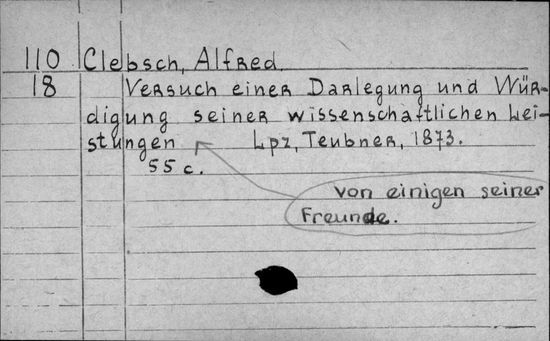 110 Clebsch, Alfred.
18 Versuch einer Darlegung und Wür-
digung seiner wissenschaftlichen Lei-
stungen Lpz, Teubner, 1873.
55 c.
von einigen seiner
Freunde.